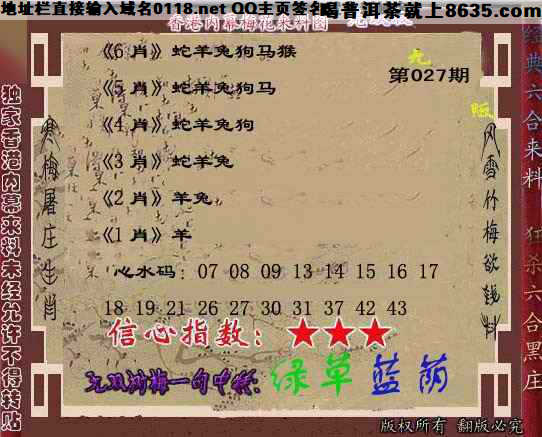 地址栏直接输入域名0118.net QQ主页签名
喝普洱茶就上8635.com
香港内幕梅花来料图
《6 肖》蛇羊兔狗马猴
第027期
《5 肖》蛇羊兔狗马
《4 肖》蛇羊兔狗
《3 肖》蛇羊兔
《2 肖》羊兔
《1 肖》羊
心水码：07 08 09 13 14 15 16 17
18 19 21 26 27 30 31 37 42 43
信心指数：★★★
绿草蓝荫
版权所有 翻版必究
独家香港内幕来料未经允许不得转贴
寒梅屠庄生肖
风雪竹梅欲钱料
经典六合来料
狂杀六合黑庄